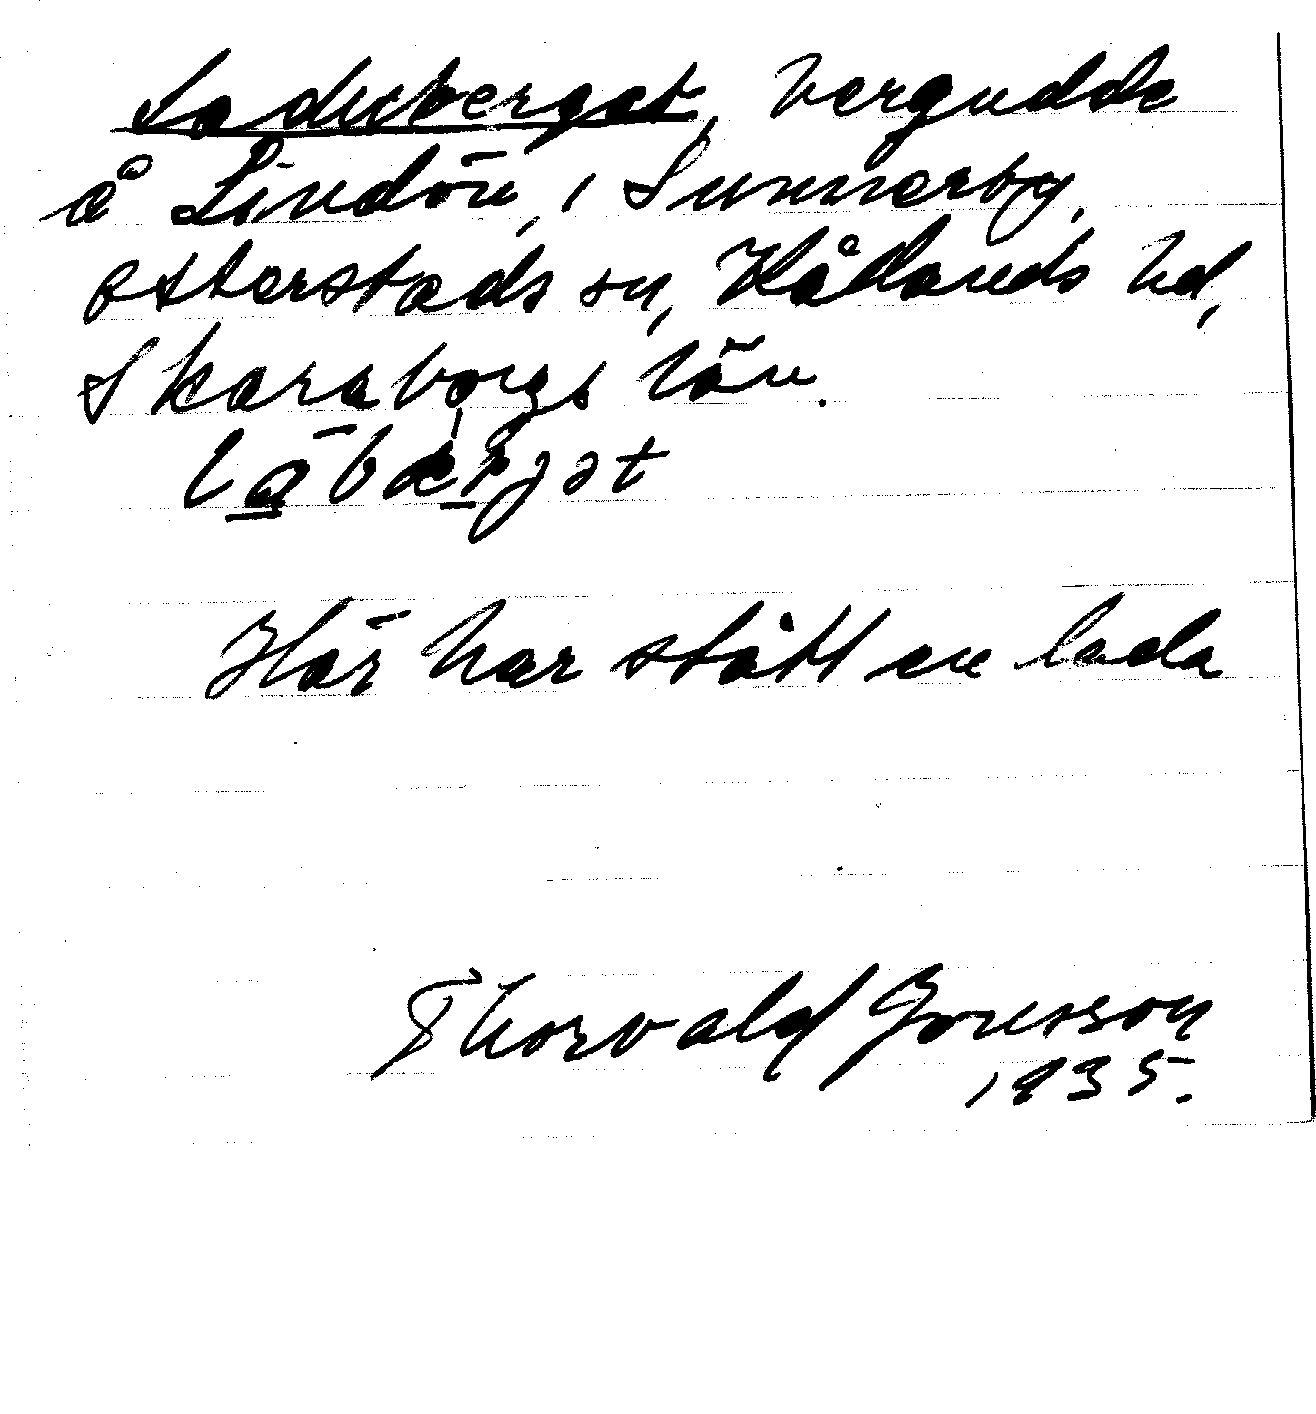 Laduberget, bergudde
å Lindön, i Sunnerby,
Otterstads sn, Kållands hd,
Skaraborgs län.
lābæ̀rjət
Här har stått en lada
Thorvald Jonsson
1935.